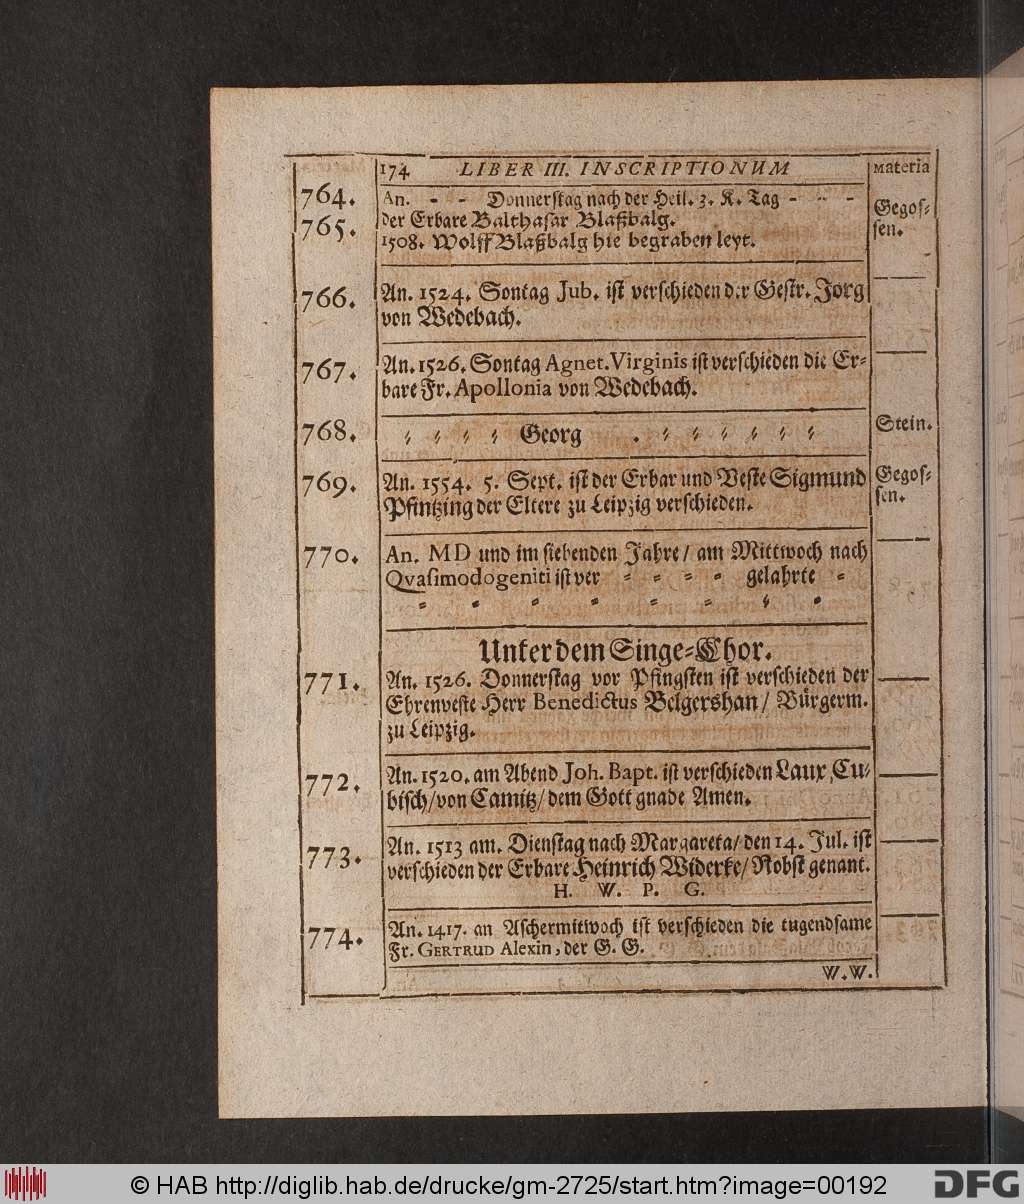 174 LIBER III. INSCRIPTIONUM Materia
764. An. - - Donnerstag nach der Heil. 3. K. Tag - - -
765. der Erbare Balthasar Blaßbalg. Gegos-
sen.
1508. Wolff Blaßbalg hie begraben leyt.
766. An. 1524. Sontag Jub. ist verschieden der Gestr. Jorg
von Wedebach.
767. An. 1526. Sontag Agnet. Virginis ist verschieden die Er-
bare Fr. Apollonia von Wedebach.
768. Georg Stein.
769. An. 1554. 5. Sept. ist der Erbar und Veste Sigmund Gegos-
Pfintzing der Eltere zu Leipzig verschieden. sen.
770. An. MD und im siebenden Jahre/ am Mittwoch nach
Qvasimodogeniti ist ver - - - - gelahrte -
- - - - - - - -
Unter dem Singe-Chor.
771. An. 1526. Donnerstag vor Pfingsten ist verschieden der
Ehrenveste Herr Benedictus Belgershan/ Bürgerm.
zu Leipzig.
772. An. 1520. am Abend Joh. Bapt. ist verschieden Laux Cu-
bisch/ von Camitz/ dem Gott gnade Amen.
773. An. 1513 am. Dienstag nach Margareta/ den 14. Jul. ist
verschieden der Erbare Heinrich Widerke/ Robst genant.
H. W. P. G.
774. An. 1417. an Aschermitwoch ist verschieden die tugendsame
Fr. GERTRUD Alexin, der G. G.
W. W.
© HAB http://diglib.hab.de/drucke/gm-2725/start.htm?image=00192
DFG